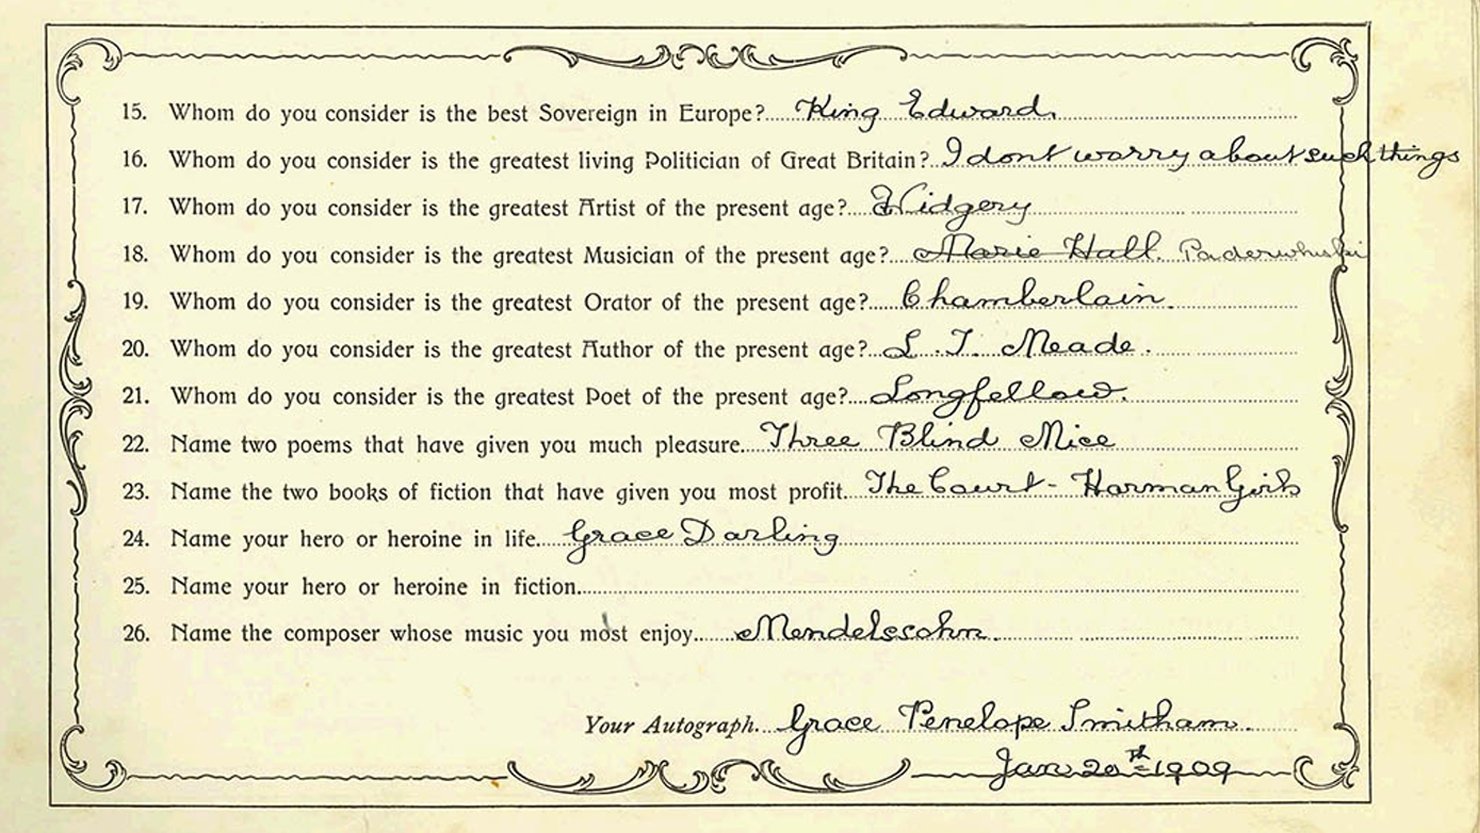 15. Whom do you consider is the best Sovereign in Europe? King Edward.
16. Whom do you consider is the greatest living Politician of Great Britain? I dont worry about such things
17. Whom do you consider is the greatest Artist of the present age? Widgery
18. Whom do you consider is the greatest Musician of the present age? Marie Hall. Paderwhuski
19. Whom do you consider is the greatest Orator of the present age? Chamberlain.
20. Whom do you consider is the greatest Author of the present age? L. T. Meade.
21. Whom do you consider is the greatest Poet of the present age? Longfellow.
22. Name two poems that have given you much pleasure. Three Blind Mice
23. Name the two books of fiction that have given you most profit. The Court - Harman Girls
24. Name your hero or heroine in life. Grace Darling
25. Name your hero or heroine in fiction.
26. Name the composer whose music you most enjoy. Mendelssohn.
Your Autograph. Grace Penelope Smitham.
Jan 20th 1909